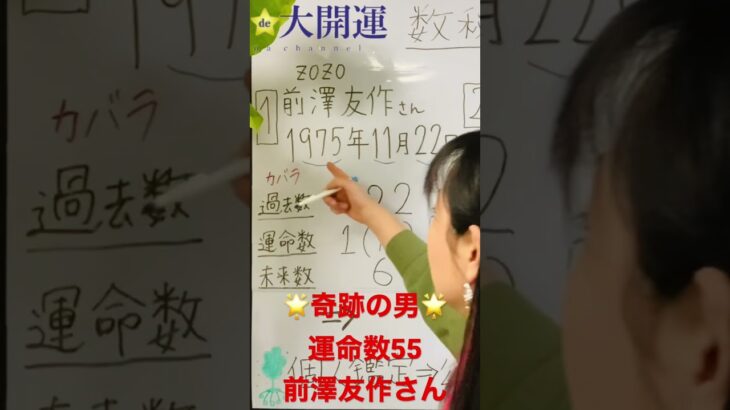 de 大開運
na channel
数秘
ZOZO
1 前澤友作さん
1975年11月22日
カバラ
過去数 22
運命数 1(
未来数 6
個人鑑定⇒
🌟奇跡の男🌟
運命数55
前澤友作さん
カバラ
過去数
運命数